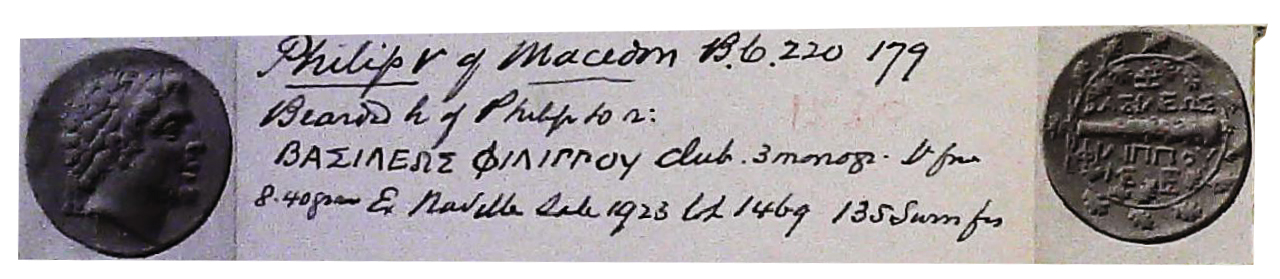 Philip V of Macedon B.C. 220 179
Beard h of Philip to r:
ΒΑΣΙΛΕΩΣ ΦΙΛΙΠΠΟΥ club. 3 monogr. V fine
8.40 gram Ex Naville Sale 1923 lot 1469 135 Swiss frs
ΒΑΣΙΛΕΩΣ
ΦΙΛΙΠΠΟΥ